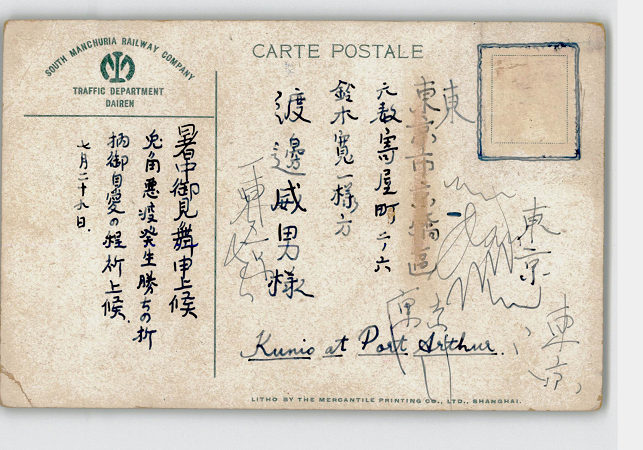 SOUTH MANCHURIA RAILWAY COMPANY
TRAFFIC DEPARTMENT
DAIREN
CARTE POSTALE
東京市京橋區
元数寄屋町二ノ六
鈴木寛一様方
渡邊威男様
Kunio at Port Arthur.
暑中御見舞申上候
兎角悪疫発生勝ちの折
柄御自愛の程祈上候、
七月二十九日、
東
東京
東京
LITHO BY THE MERCANTILE PRINTING CO., LTD., SHANGHAI.